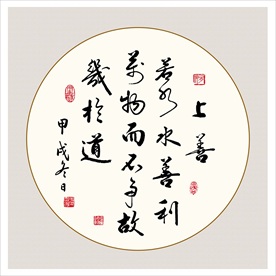 上善
若水水善利
萬物而不争故
幾於道
甲戌冬日